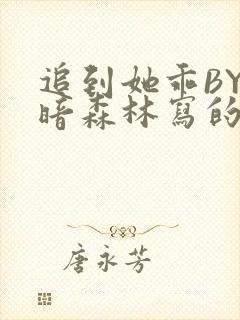 追到她乖BY
暗森林寫的
唐永芳